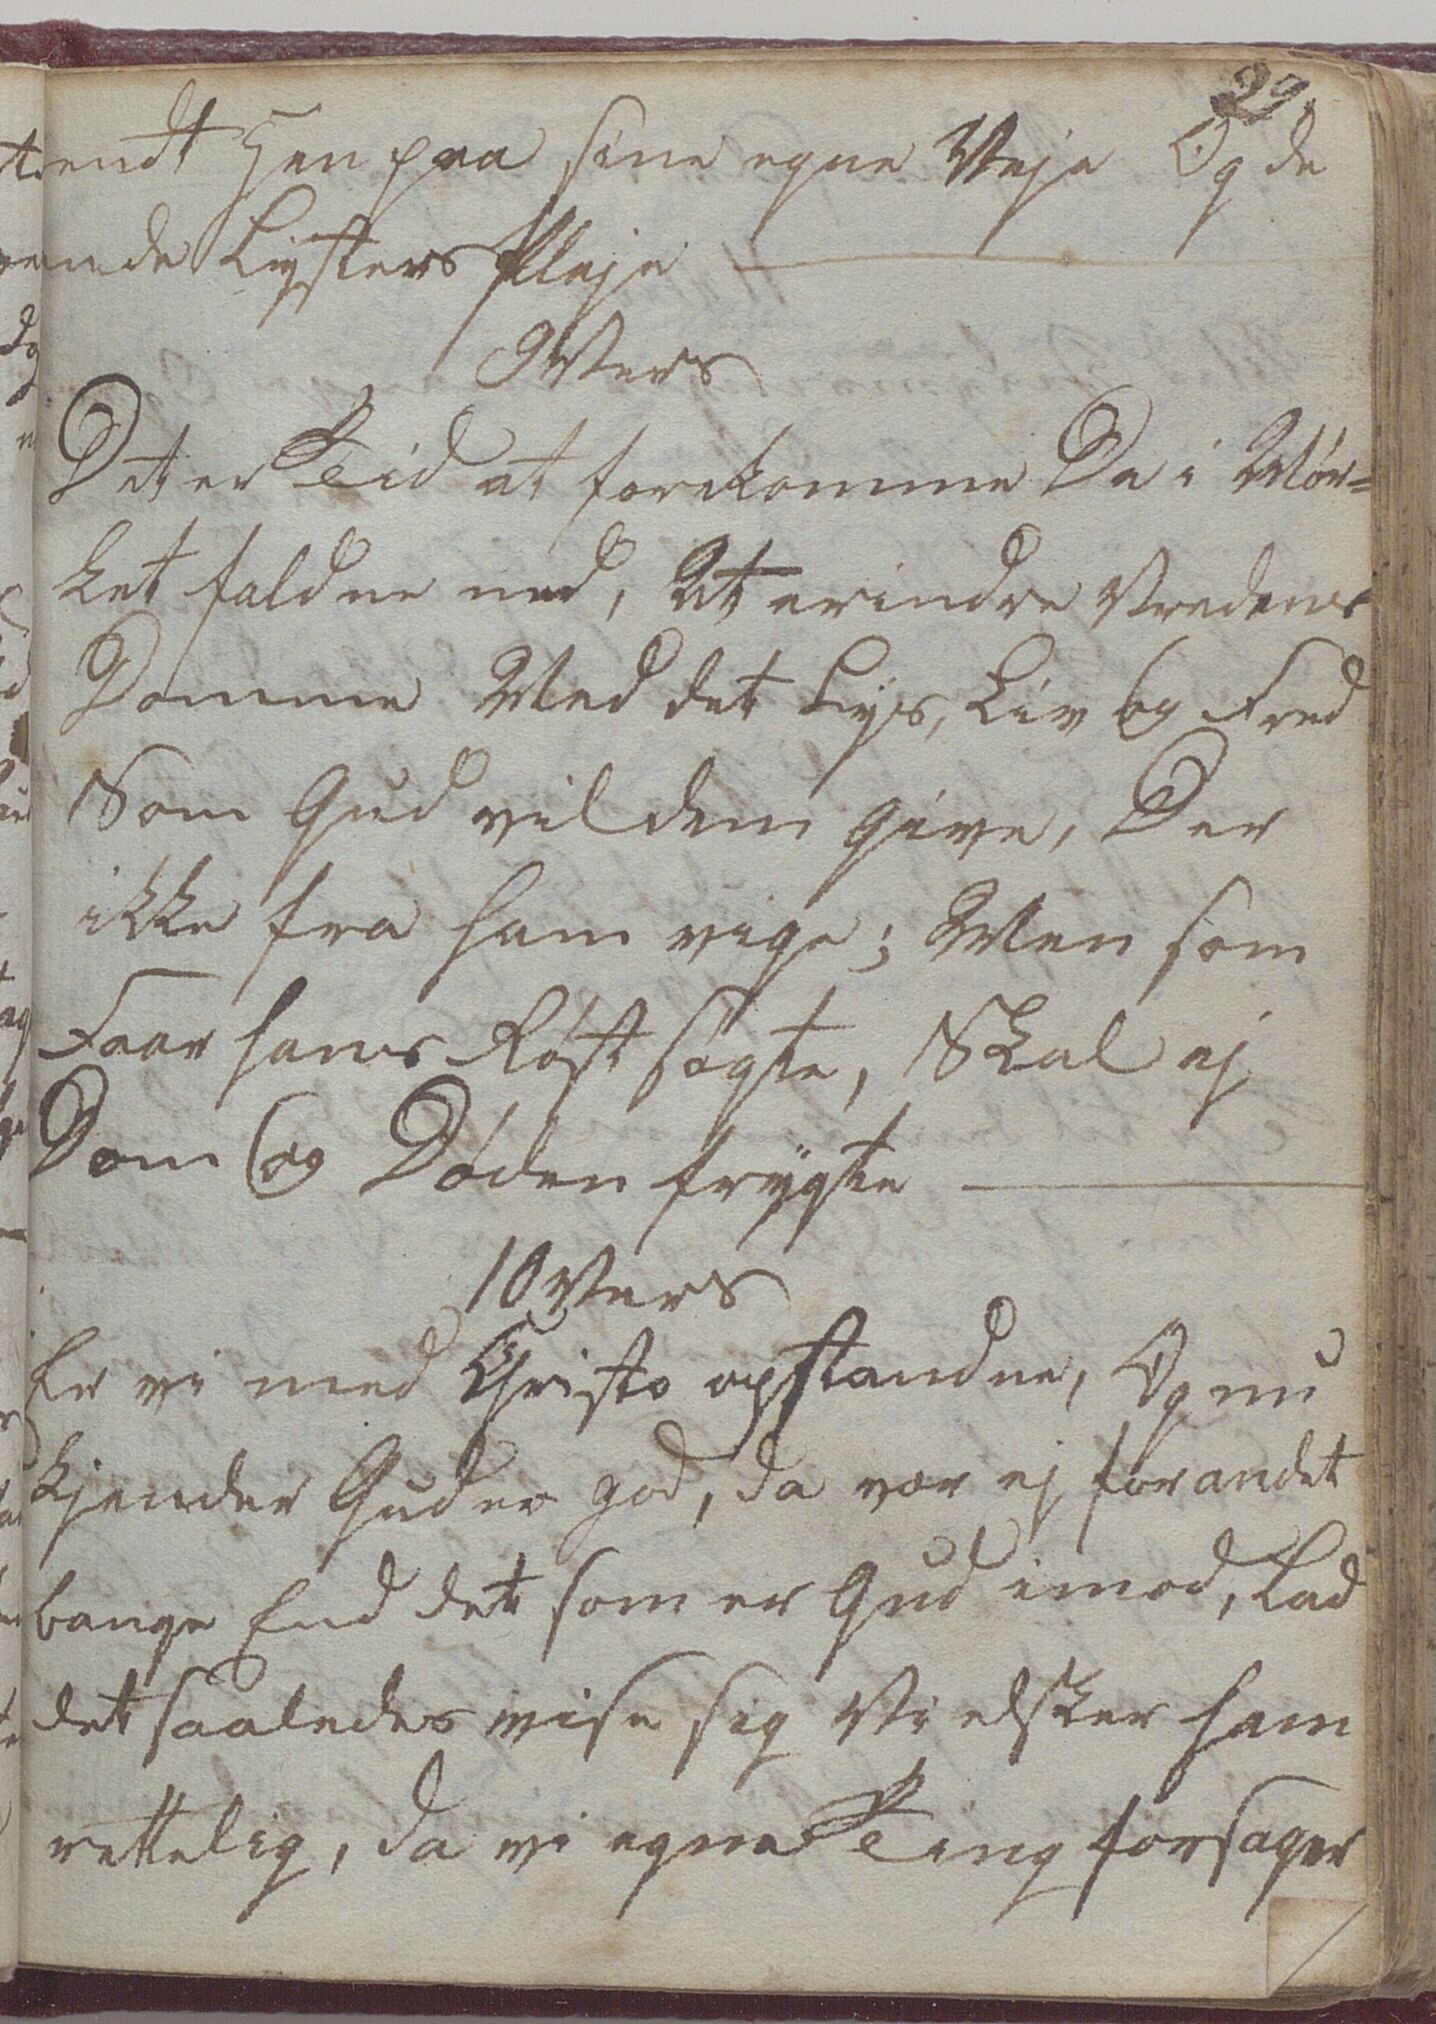 29.
tendt Hen paa sine egne Veje Og de
onde Lysters Pleje
9 Vers
Det er Tid at forekomme De i Mør=
ket faldne ned, At erindre Vredens
Domme Med det Lys, Liv og Fred
Som Gud vil dem give, Der
ikke fra ham vige; Men som
Faar hans Røst søgte, Skal ej
Dom og Døden frygte
10 Vers
Er vi med Christo opstandne, Og nu
kjender Gud er god, da vær ej for andet
bange End det som er Gud imod, Lad
det saaledes vise sig Vi elsker ham
rettelig, da vi egne Ting forsager